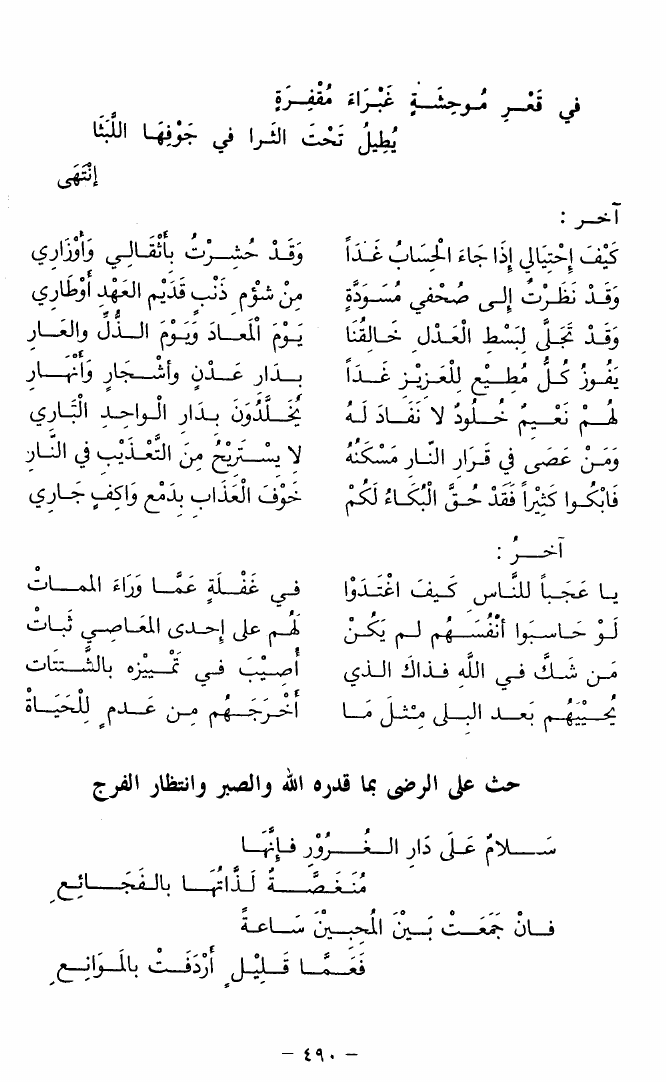 في قَعْرِ مُوحِشَةٍ غَبْرَاءَ مُقْفِرَةٍ
يُطِيلُ تَحْتَ الثَرا في جَوْفِهَا اللَّبَثَا
إنْتَهَى
آخر :
كَيْفَ إحْتِيَالي إذَا جَاءَ الحِسَابُ غَداً وَقَدْ حُشِرْتُ بأَثْقَالي وَأَوْزَاري
وَقَدْ نَظَرْتُ إلى صُحْفي مُسَوَدَّةٍ مِنْ شؤْمِ ذَنْبٍ قَدْيمِ العَهْدِ أَوْطَاري
وَقَدْ تَجَلَّى لِبَسْطِ العَدْلِ خَالِقُنَا يَوْمَ المَعَادَ وَيَوْمَ الذُّلِّ والعَارِ
يَفُوزُ كُلُّ مُطِيْعٍ لِلْعَزِيْزِ غَداً بِدَارِ عَدْنٍ وأشْجَارٍ وَأَنْهَارِ
لَهُمْ نَعْيمٌ خُلُودٌ لا نَفَادَ لَهُ يُخَلَّدُوَنَ بِدَارِ الواحِدِ البَاري
وَمَنْ عَصَى في قَرَارِ النَّارِ مَسْكَنُهُ لا يَسْتَرِيْحُ مِنَ التَّعْذِيْبِ في النَّارِ
فَابْكُوا كَثِيْراً فَقَدْ حُقَّ الْبُكَاءُ لَكُمْ خَوْفَ الْعَذَابِ بِدَمْعٍ وَاكِفٍ جَاري
آخرُ :
يا عَجَباً للنَّاسِ كَيفَ اغْتَدَوْا في غَفْلَةٍ عَمَّا وَرَاءَ المماتْ
لَوْ حَاسَبوا أنْفُسَهُم لم يَكُنْ لَهُم على إحدى المَعاصِي ثَباتْ
مَن شَكَّ في اللَّهِ فذاكَ الذي أصِيْبَ في تَمْيِيْزِه بالشَّتَتات
يُحْيِيْهُم بَعدَ البِلى مِثْلَ مَا أَخْرَجَهُم مِن عَدمٍ لِلْحَيَاةْ
حث على الرضى بما قدره الله والصبر وانتظار الفرج
سَلامٌ عَلَى دَارِ الغُرُوْرِ فإنَّهَا
مُنَغَصَّةٌ لَذَّاتُهَا بالفَجَائِعِ
فانْ جَمَعَتْ بَيْنَ المُحِبينَ سَاعةً
فَعَمَّا قَلِيْلٍ أَرْدَفَتْ بالمَوَانِعِ
– ٤٩٠ –